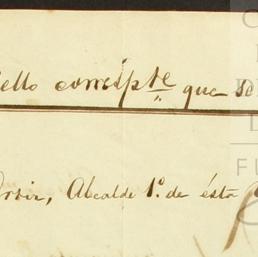 ello corresp.te que se
Alcalde 1.º de ésta